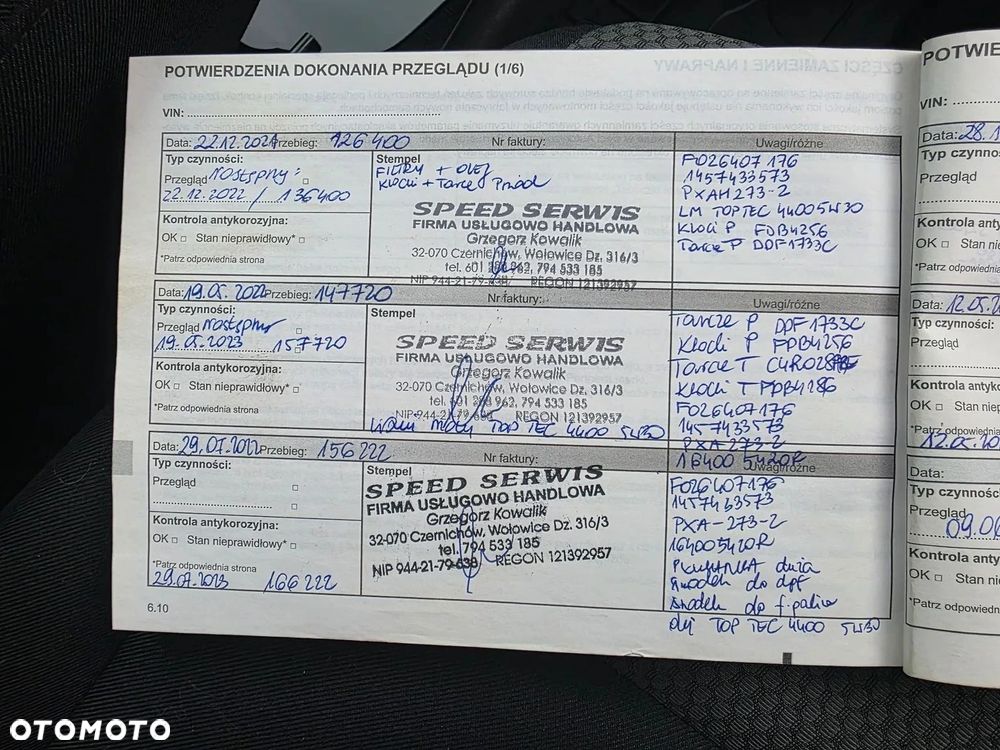 POTWIERDZENIA DOKONANIA PRZEGLĄDU (1/6)
VIN:
Data: 22.12.2021 Przebieg: 126400 Nr faktury: Uwagi/różne
Typ czynności:
Przegląd następny:
22.12.2022 / 136400
Kontrola antykorozyjna:
OK Stan nieprawidłowy*
*Patrz odpowiednia strona
Stempel
FILTRY + OLEJ
Klocki + Tarcze Przód
SPEED SERWIS
FIRMA USŁUGOWO HANDLOWA
Grzegorz Kowalik
32-070 Czernichów, Wołowice Dz. 316/3
tel. 601 288 962, 794 533 185
NIP 944-21-79-638 REGON 121392957
F026407176
1457433573
PXAH273-2
LM TOPTEC 4400 5W30
Klocki P FDB4256
Tarcze P DDF1733C
Data: 19.05.2022 Przebieg: 147720 Nr faktury: Uwagi/różne
Typ czynności:
Przegląd następny
19.05.2023 157720
Kontrola antykorozyjna:
OK Stan nieprawidłowy*
*Patrz odpowiednia strona
Stempel
SPEED SERWIS
FIRMA USŁUGOWO HANDLOWA
Grzegorz Kowalik
32-070 Czernichów, Wołowice Dz. 316/3
tel. 601 288 962, 794 533 185
NIP 944-21-79-638 REGON 121392957
TOP TEC 4400 5W30
Tarcze P DDF1733C
Klocki P FDB4256
Tarcze T
Klocki T FDB4286
F026407176
1457433573
PXA-273-2
164005420R
Data: 29.07.2022 Przebieg: 156222 Nr faktury: Uwagi/różne
Typ czynności:
Przegląd
Kontrola antykorozyjna:
OK Stan nieprawidłowy*
*Patrz odpowiednia strona
29.07.2023 166222
Stempel
SPEED SERWIS
FIRMA USŁUGOWO HANDLOWA
Grzegorz Kowalik
32-070 Czernichów, Wołowice Dz. 316/3
tel. 794 533 185
NIP 944-21-79-638 REGON 121392957
F026407176
1457433573
PXA-273-2
164005420R
PŁUKANKA duża
środek do dpf
środek do f.paliwa
olej TOP TEC 4400 5W30
6.10
POTWIE
VIN:
Data: 28.1
Typ czynnoś
Przegląd
Kontrola anty
OK Stan nie
*Patrz odpowiednia
Data: 12.05.2
Typ czynności:
Przegląd
Kontrola antyk
OK Stan niep
*Patrz odpowiednia
12.05.20
Data:
Typ czynności
Przegląd
09.06
Kontrola antyko
OK Stan niep
*Patrz odpowiednia
OTOMOTO